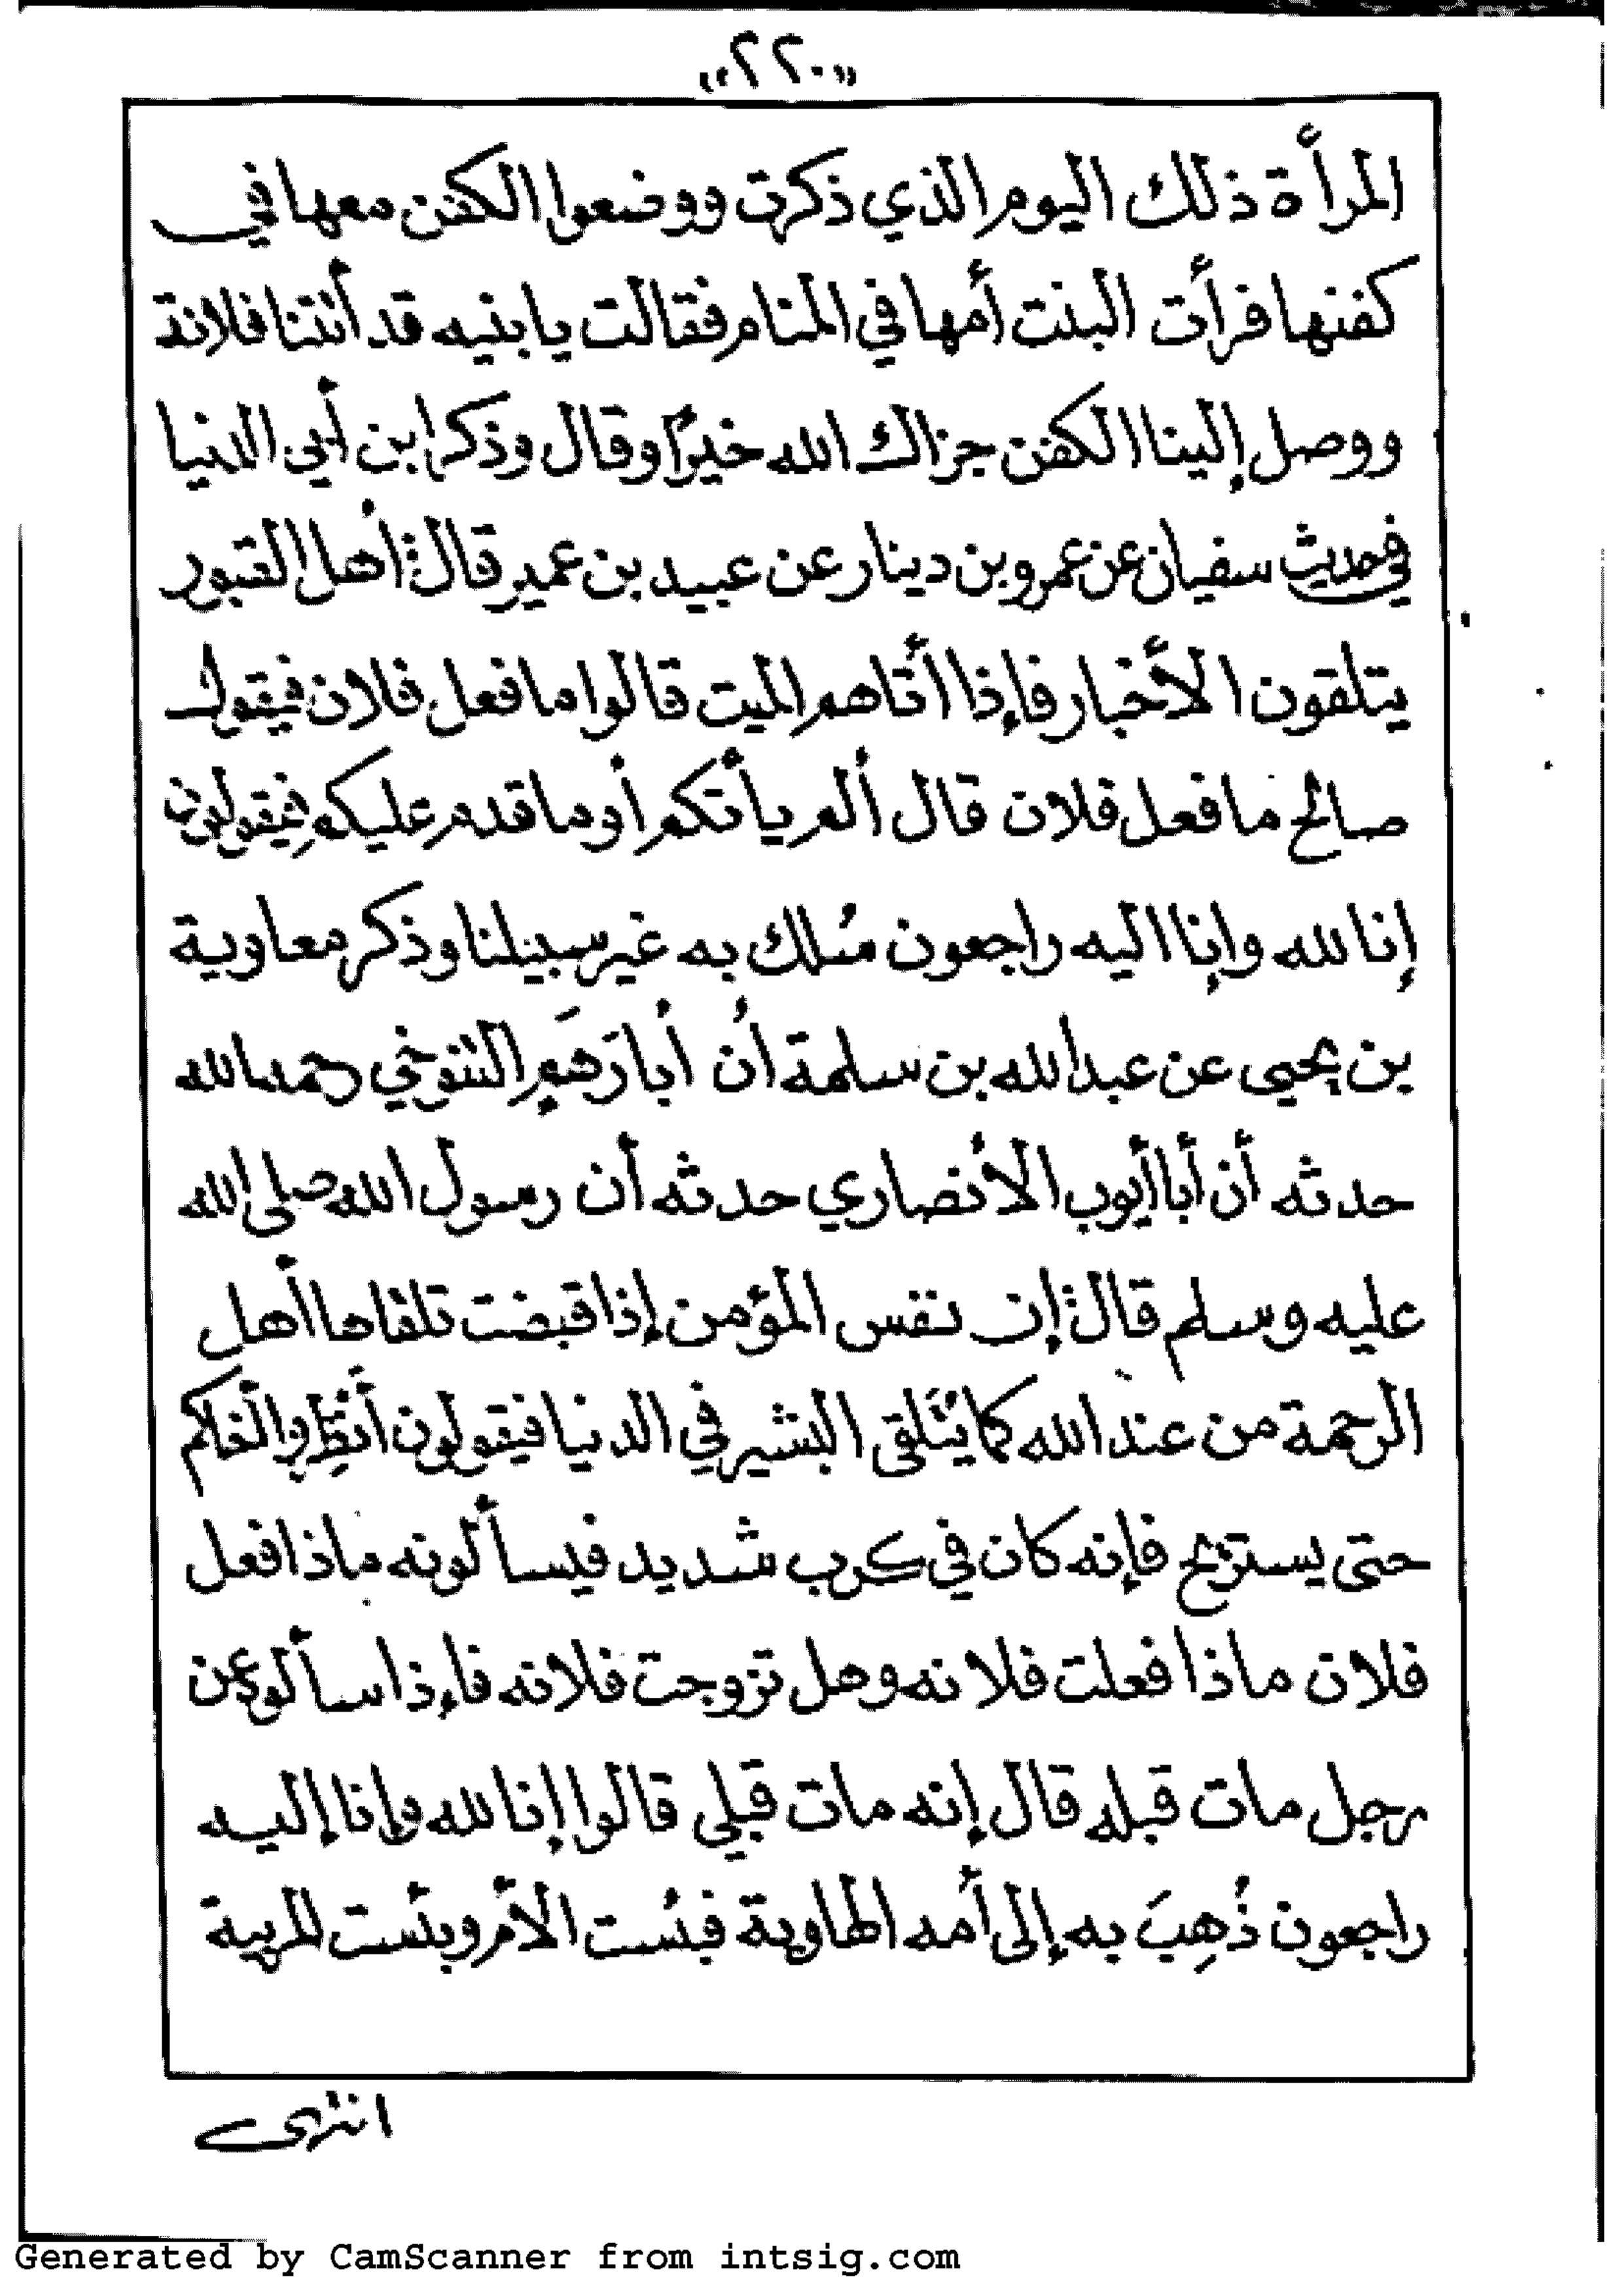 «٢٢٠»
المرأة ذلك اليوم الذي ذكرت ووضعوا الكفن معها في
كفنها فرأت البنت أمها في المنام فقالت يا بنيه قد أتتنا فلانة
ووصل إلينا الكفن جزاك الله خيرًا وقال وذكر ابن أبي الدنيا
في حديث سفيان عن عمرو بن دينار عن عبيد بن عمير قال: أهل القبور
يتلقون الأخبار فإذا أتاهم الميت قالوا ما فعل فلان فيقول
صالح ما فعل فلان قال ألم يأتكم أو ما قدم عليكم فيقولون
إنا لله وإنا اليه راجعون سُلك به غير سبيلنا وذكر معاوية
بن يحيى عن عبد الله بن سلمة أن أبا رَهم التنوخي رحمه الله
حدثه أن أبا أيوب الأنصاري حدثه أن رسول الله صلى الله
عليه وسلم قال: إن نفس المؤمن إذا قبضت تلقاها أهل
الرحمة من عند الله كما يُتَلقى البشير في الدنيا فيقولون أنظِروا أخاكم
حتى يستريح فإنه كان في كرب شديد فيسألونه ماذا فعل
فلان ماذا فعلت فلانه وهل تزوجت فلانه فإذا سألوه عن
رجل مات قبله قال إنه مات قبلي قالوا إنا لله وإنا إليه
راجعون ذُهِبَ به إلى أمه الهاوية فبئست الأم وبئست المربية
انتهى
Generated by CamScanner from intsig.com